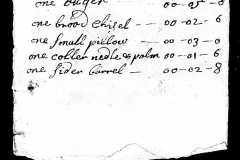 one auger 00-05-0
one broad Chisel -- 00-02-6
one small pillow -- 00-03-0
one coller nedle & palm 00-01-6
one sider barrel -- 00-02-8